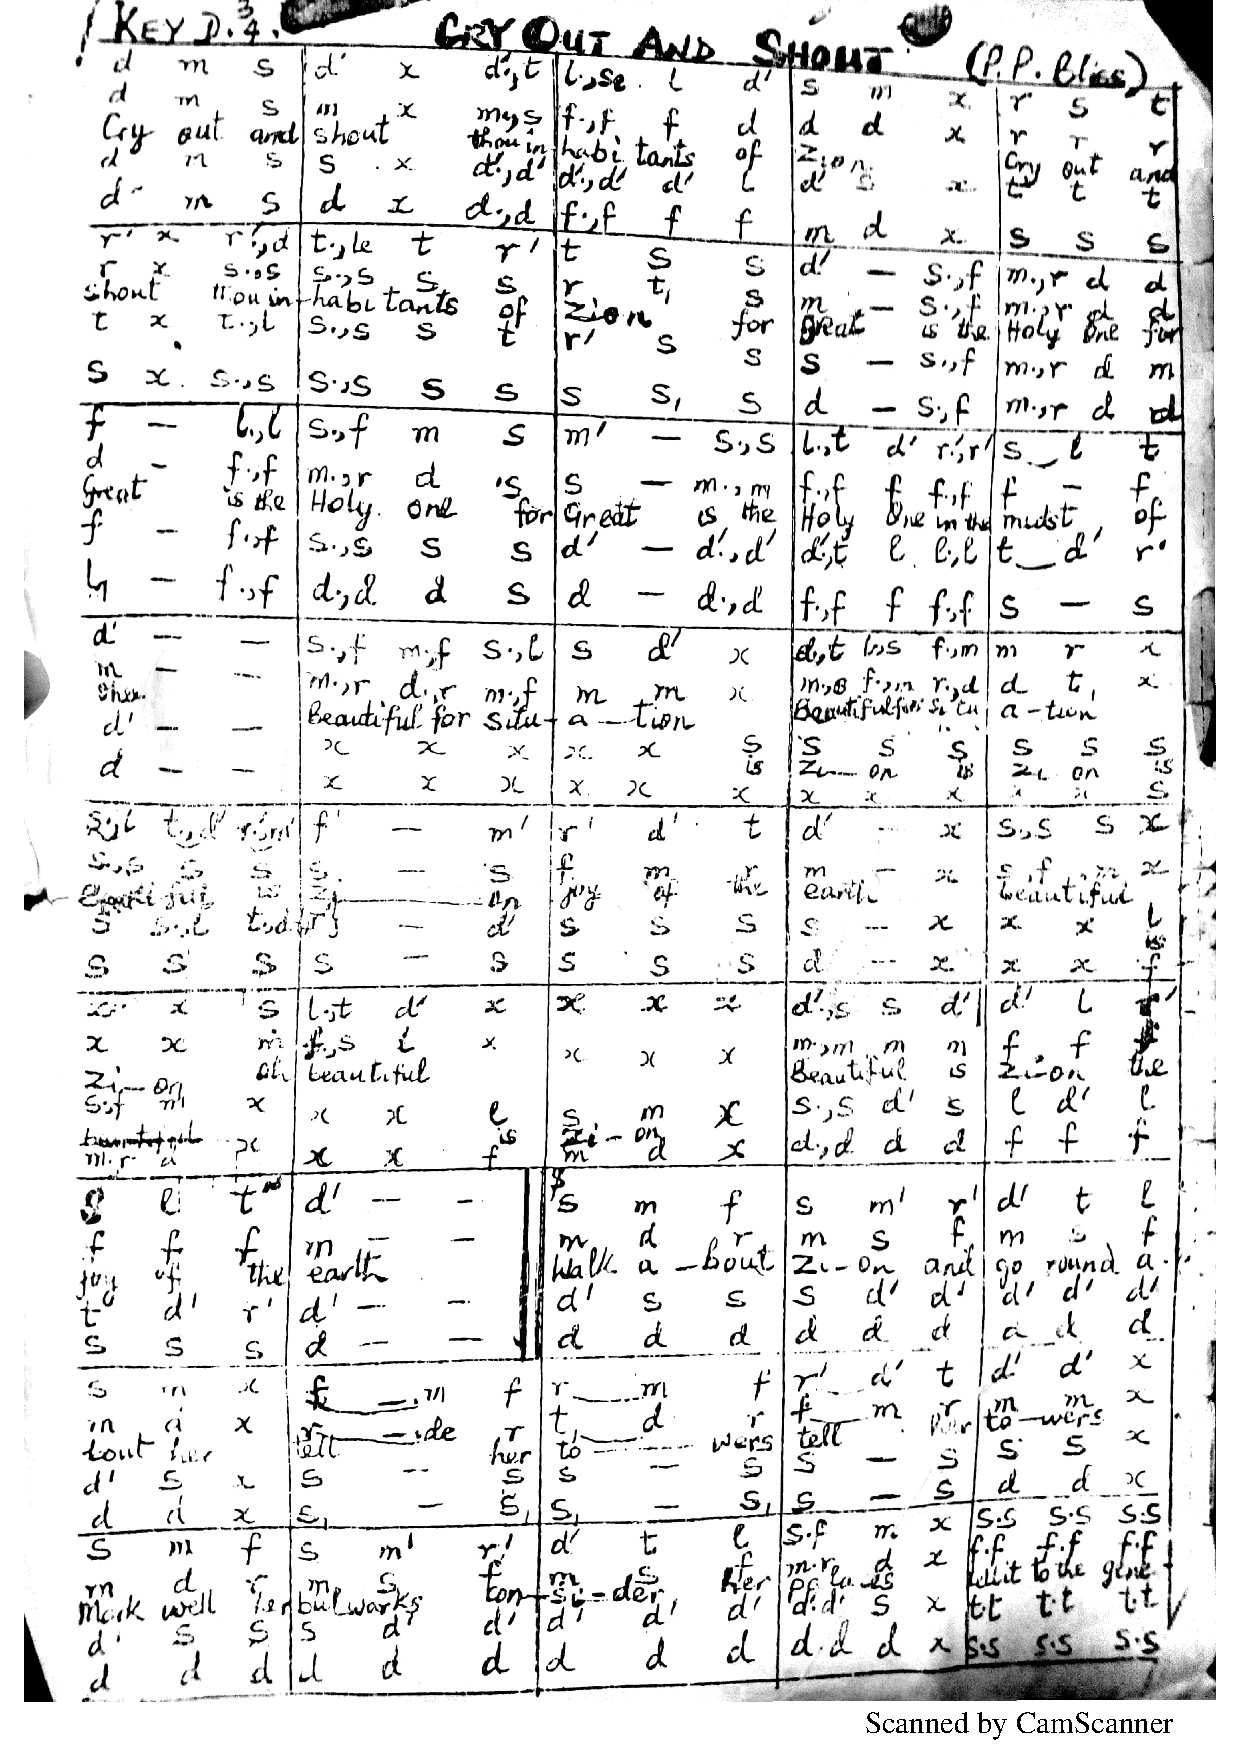 KEY D. 3/4. CRY OUT AND SHOUT (P.P. Bliss)
d m s | d' x d'.,t | l.,se . l d' | s m x | r s t
d m s | m x m.,s | f.,f f d | d d x | r r r
Cry out and shout thou in-habitants of Zion. Cry out and
d m s | s . x d'.,d' | d'.,d' d' l | d' s x | t t t
d m s | d x d.,d | f.,f f f | m d x | s s s
r' x r'.,d | t.,le t r' | t s s | d' – s.,f | m.,r d d
r x s.,s | s.,s s s | r t, s | m – s.,f | m.,r d d
shout thou in-habitants of Zion for great is the Holy one for
t x t.,l | s.,s s t | r' s s | s – s.,f | m.,r d m
s x. s.,s | s.,s s s | s s, s | d – s.,f | m.,r d d
f – l.,l | s.,f m s | m' – s.,s | l.,t d' r'.,r' | s_l t
d – f.,f | m.,r d s | s – m.,m | f.,f f f.,f | f – f
Great is the Holy. one for Great is the Holy One in the midst of
f – f.,f | s.,s s s | d' – d'.,d' | d'.,t l l.,l | t_d' r'
l, – f.,f | d.,d d s | d – d.,d | f.,f f f.,f | s – s
d' – – | s.,f m.,f s.,l | s d' x | d.,t l.,s f.,m | m r x
m – – | m.,r d.,r m.,f | m m x | f.,m r.,d | d t, x
Beautiful for situ-a-tion Beautiful for situ a-tion
d' – – | x x x | x x s | s s s | s s s
is Zi-on is Zi on is
d – – | x x x | x x x | x x x | x x s
s.,l t.,d' r'.,m' | f' – m' | r' d' t | d' – x | s.,s s x
s.,s s s | s. – s | f m r | m – x | s.f .,m x
is Zi on joy of the earth beautiful
s s.,l | – d' | s s s | s – x | x x l
is
s s s | s – s | s s s | d – x | x x f
x x s | l.,t d' x | x x x | d'.,s s d' | d' l r'
x x m | f.,s l x | x x x | m.,m m m | f f
Zi-on oh beautiful Beautiful is Zi-on the
s.f m x | x x l | s m x | s.,s d' s | l d' l
is Zi-on
m.r d x | x x f | m d x | d.,d d d | f f f
s l t | d' – – | s m f | s m' r' | d' t l
f f f | m – – | m d r | m s f | m s f
joy of the earth Walk a-bout Zi-on and go round a-
t d' r' | d' – – | d' s s | s d' d' | d' d' d'
s s s | d – – | d d d | d d d | d d d
s m x | f_.m f | r_m f | r'_d' t | d' d' x
m d x | r_.de r | t,_d r | f_m r | m m x
bout her tell her to wers tell her to-wers
d' s x | s – s | s – s | s – s | s s x
d d x | s, – s, | s, – s, | s – s | d d x
s m f | s m' r' | d' t l | s.f m x | s.s s.s s.s
m d r | m s f | m s f | m.r d x | f.f f.f f.f
Mark well her bulworks con-si-der her Pa laces tell it to the gene-
d' s s | s d' d' | d' d' d' | d'.d' s x | t.t t.t t.t
d d d | d d d | d d d | d.d d x | s.s s.s s.s
Scanned by CamScanner